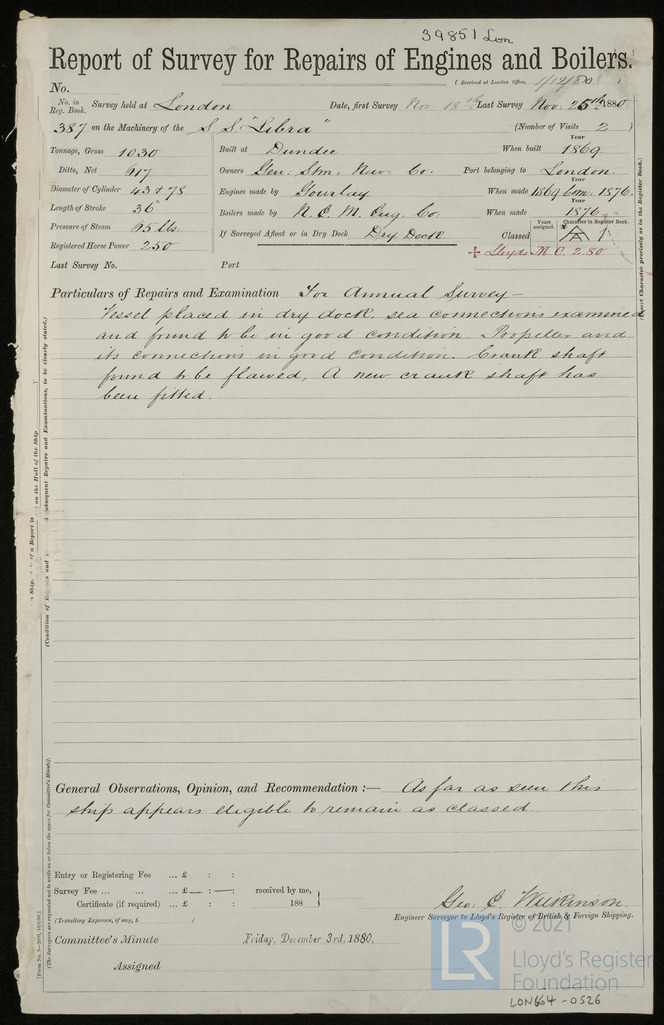 39851 Lon
Report of Survey for Repairs of Engines and Boilers.
(Received at London Office, 1/12/80)
No.
No. in Reg. Book. Survey held at London Date, first Survey Nov. 18th Last Survey Nov. 25th 1880
387 on the Machinery of the S.S. "Libra" (Number of Visits 2)
Tonnage, Gross 1030 Built at Dundee When built Year 1869
Ditto, Net 917 Owners Gen. Stm. Nav. Co. Port belonging to London
Diameter of Cylinder 43 + 78 Engines made by Gourlay When made Year 1869 Com. 1876
Length of Stroke 36" Boilers made by N.E. M. Eng. Co. When made Year 1876
Pressure of Steam 65 lbs. If Surveyed Afloat or in Dry Dock Dry Dock. Classed Years assigned. Character in Register Book. A 1
Registered Horse Power 250 Lloyds M.C. 2.80
Last Survey No. Port
Particulars of Repairs and Examination For Annual Survey —
Vessel placed in dry dock, sea connections examined
and found to be in good condition. Propeller and
its connections in good condition. Crank shaft
found to be flawed, A new crank shaft has
been fitted.
General Observations, Opinion, and Recommendation :— As far as seen this
ship appears eligible to remain as classed
Entry or Registering Fee ... £ : :
Survey Fee ... ... ... £ — : — : received by me,
Certificate (if required) ... £ : : 188
(Travelling Expenses, if any, £ )
Geo. C. Wilkinson.
Engineer Surveyor to Lloyd's Register of British & Foreign Shipping.
Committee's Minute Friday, December 3rd, 1880.
Assigned
LR © 2021
Lloyd's Register
Foundation
LON664-0526
(Report Character precisely as in the Register Book.)
(The Surveyors are requested not to write on or below the space for Committee's Minute).